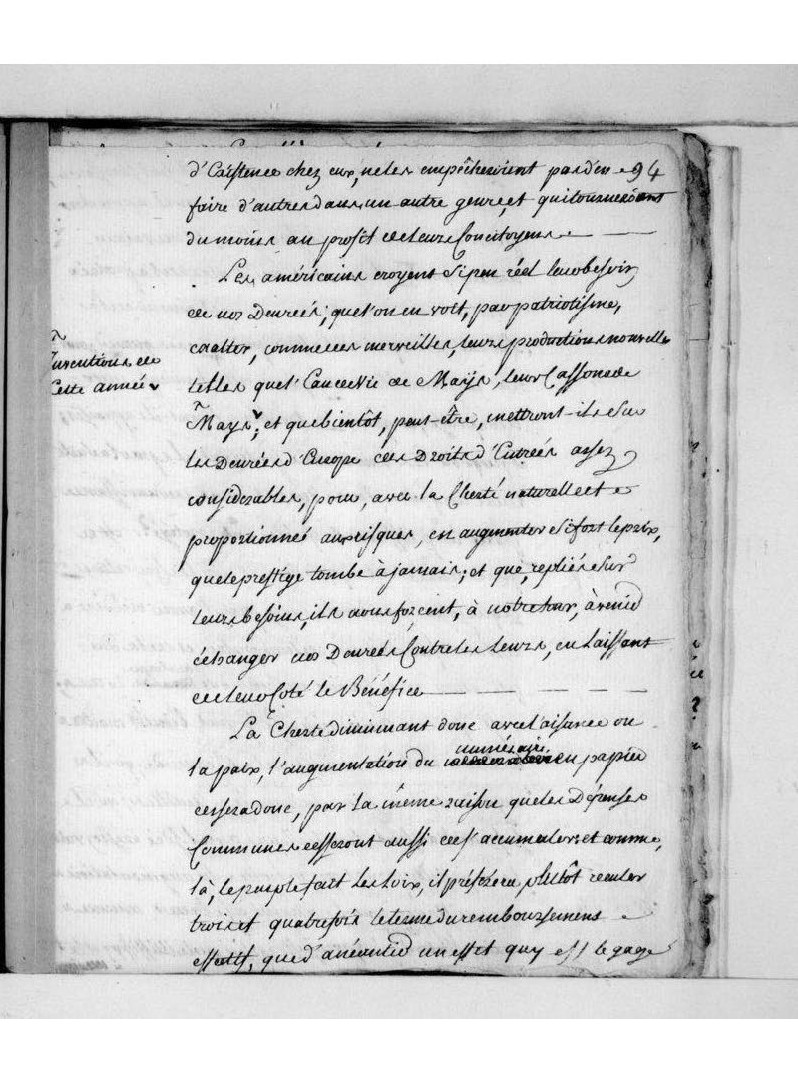 94
d'Existence chez eux, ne les empêcheroient pas d'en
faire d'autres dans un autre genre, et qui tourneroient
du moins au profit de leurs Concitoyens
Les américains croyent si peu réel leur besoin
de nos Denrées, que l'on en voit, par patriotisme,
exalter, comme des merveilles, leurs productions nouvelles
telles que l'Eau de Vie de Mays, leur Cassonade de
Mays; et que bientôt, peut-être, mettront-ils sur
Inventions de
Cette année
les Denrées d'Europe des Droits d'Entrées assez
considerables, pour, avec la Cherté naturelle et
proportionnée aux risques, en augmenter si fort le prix,
que le prestige tombe à jamais; et que, repliés sur
leurs besoins, ils nous forcent, à notre tour, à venir
échanger nos Denrées Contre les leurs, en laissant
de leur Coté le Bénéfice
La Cherté diminuant donc avec l'aisance ou
la paix, l'augmentation du numéraire en papier
cessera donc, par la même raison que les Dépenses
Communes cesseront aussi de s'accumuler: et comme,
là, le peuple fait les Loix, il préférera plutôt reculer
trois et quatre fois le terme du remboursement
effectif, que d'anéantir un effet qui est le gage